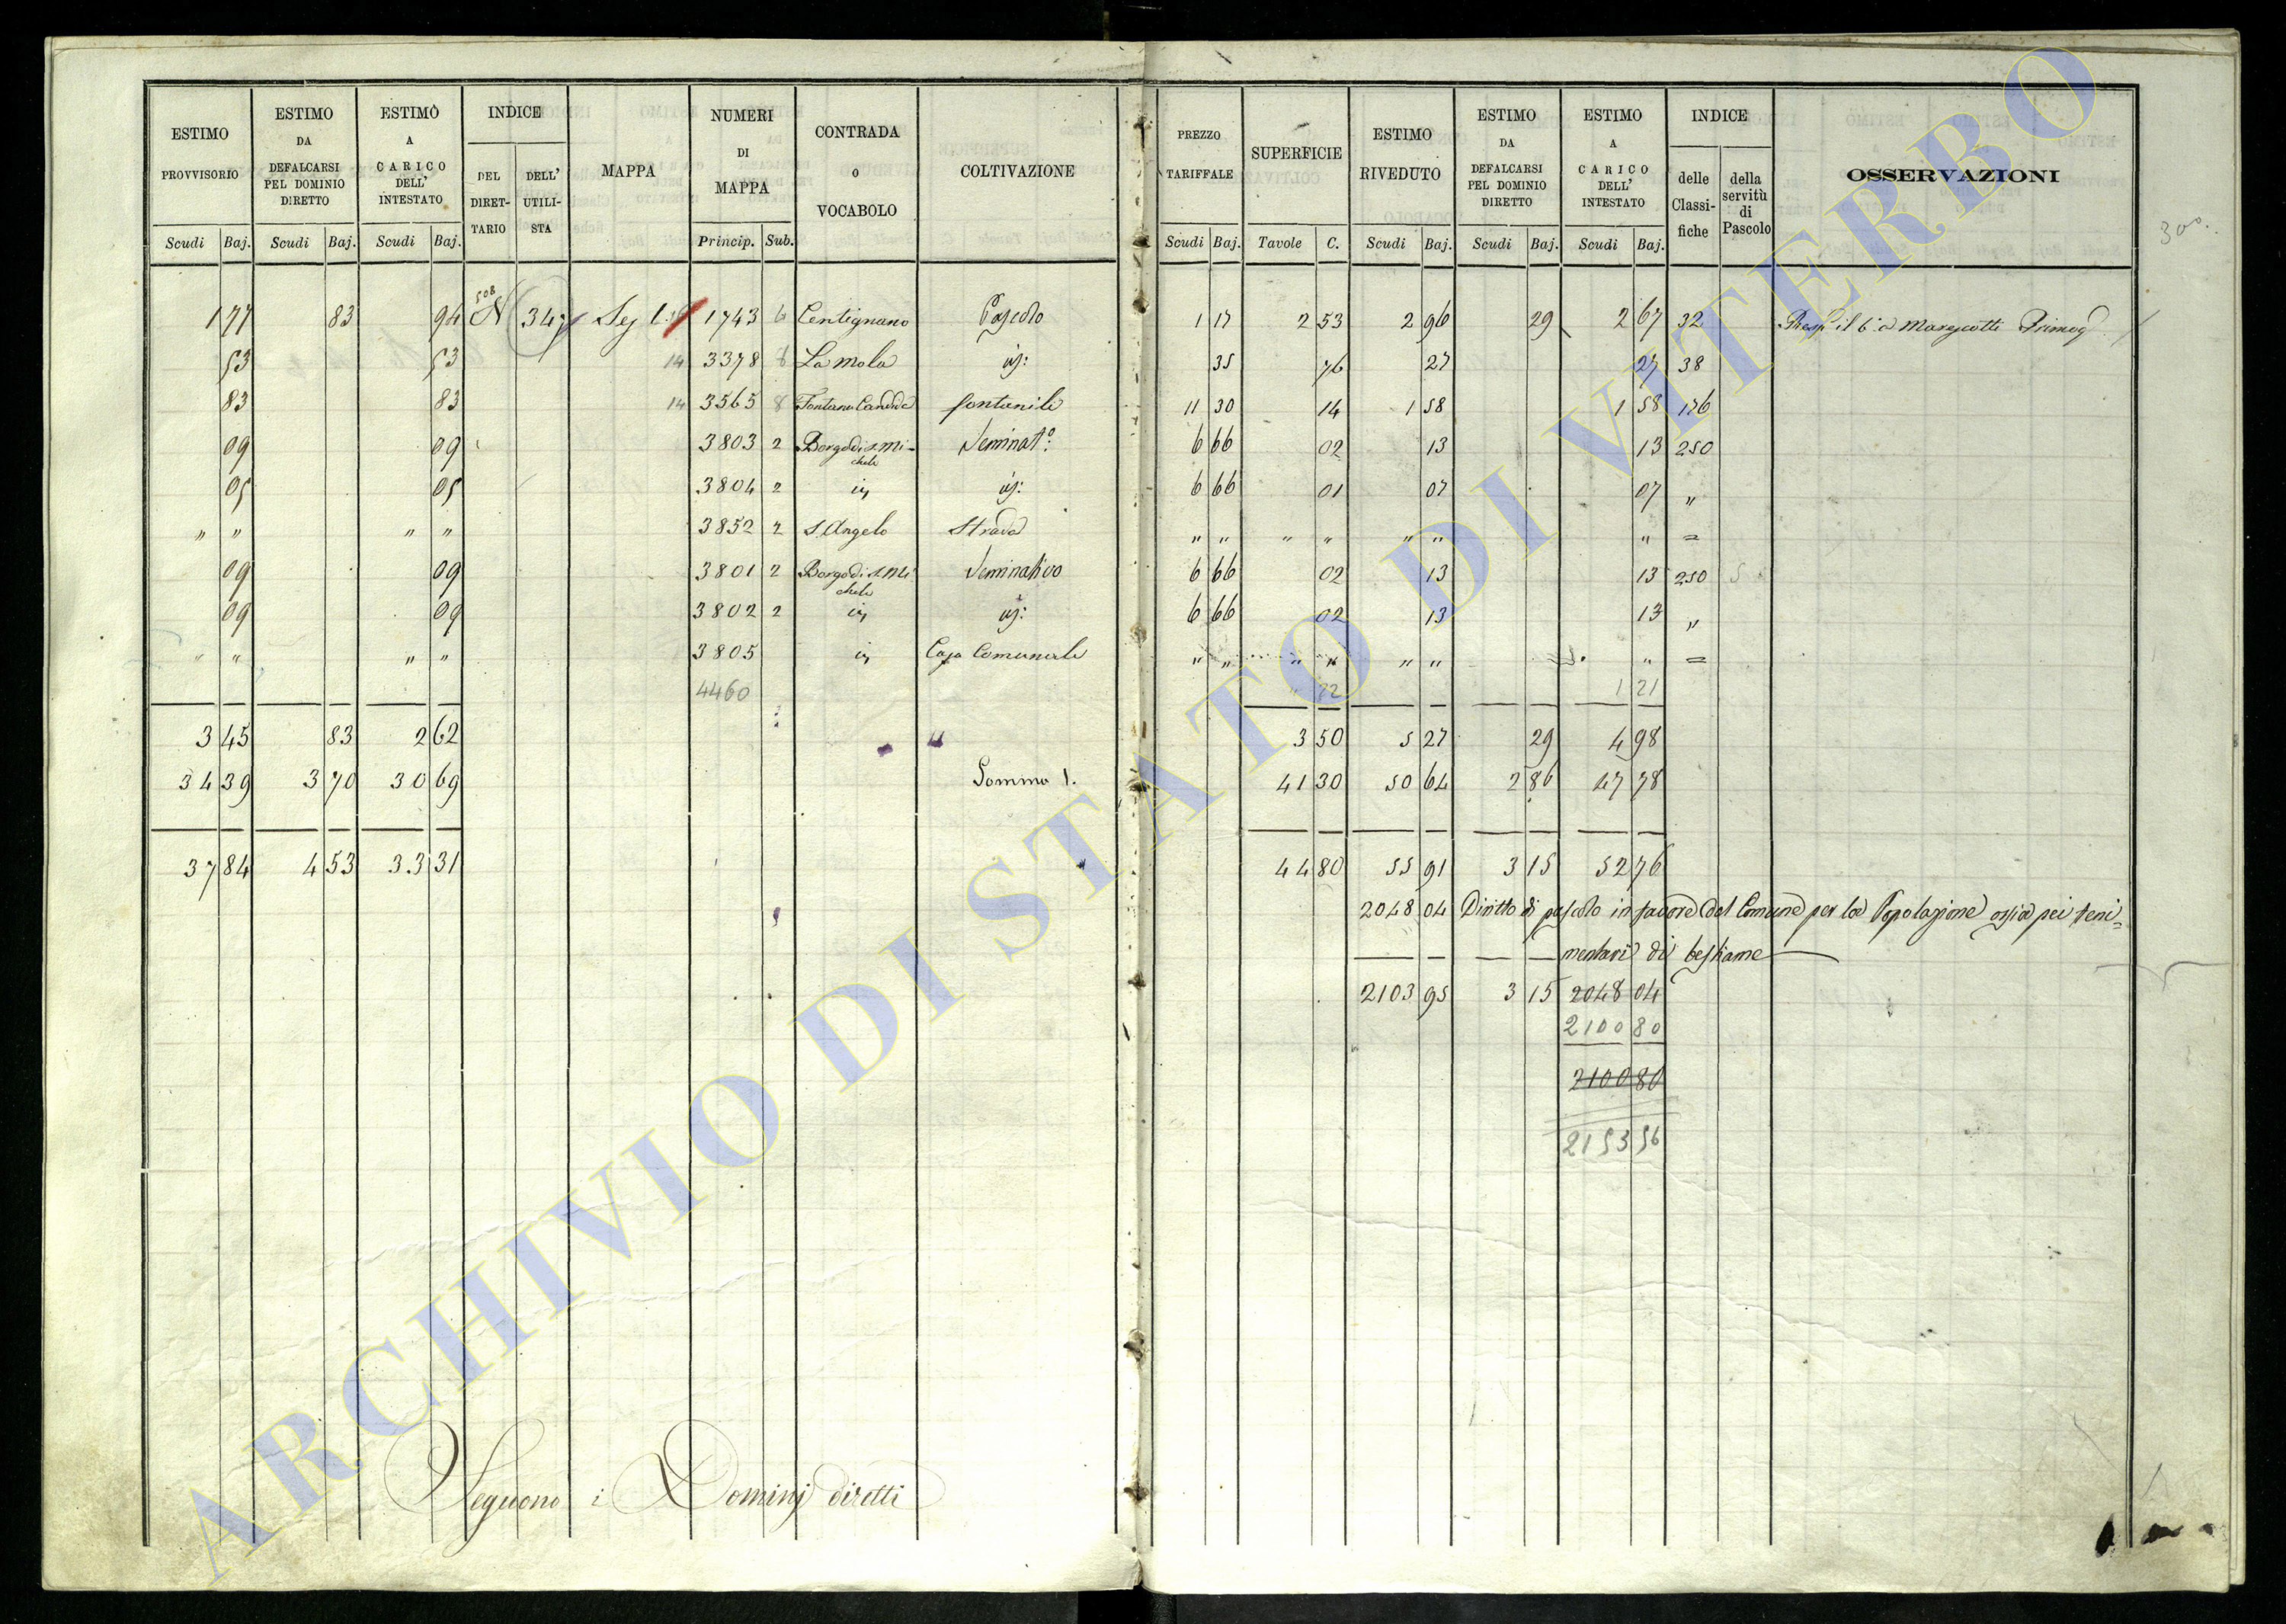 ESTIMO PROVVISORIO | ESTIMO DA DEFALCARSI PEL DOMINIO DIRETTO | ESTIMO A CARICO DELL' INTESTATO | INDICE DEL DIRET-TARIO | DELL' UTILI-STA | MAPPA | NUMERI DI MAPPA | CONTRADA O VOCABOLO | COLTIVAZIONE | PREZZO TARIFFALE | SUPERFICIE | ESTIMO RIVEDUTO | ESTIMO DA DEFALCARSI PEL DOMINIO DIRETTO | ESTIMO A CARICO DELL' INTESTATO | INDICE delle Classi-fiche | della servitù di Pascolo | OSSERVAZIONI
Scudi Baj. | Scudi Baj. | Scudi Baj. | Princip. Sub. | Scudi Baj. | Tavole C. | Scudi Baj. | Scudi Baj. | Scudi Baj.
300
508
1 77 | 83 | 94 | N | 347 | Sez 1. | 1743 6 | Centignano | Pascolo | 1 17 | 2 53 | 2 96 | 29 | 2 67 | 32 | il Marescotti
53 | 53 | 14 | 3378 | La mola | id: | 35 | 76 | 27 | 27 | 38
83 | 83 | 14 | 3565 8 | Fontana Candida | fontanile | 11 30 | 14 | 1 58 | 1 58 | 176
09 | 09 | 3803 2 | Borgo di S. Mi-chele | Seminat.o | 6 66 | 02 | 13 | 13 | 250
05 | 05 | 3804 2 | id | id: | 6 66 | 01 | 07 | 07 | "
" " | " " | 3852 2 | S. Angelo | Strada | " " | " " | " " | " | =
09 | 09 | 3801 2 | Borgo di S. Mi chele | Seminativo | 6 66 | 02 | 13 | 13 | 250 | 5
09 | 09 | 3802 2 | id | id: | 6 66 | 02 | 13 | 13 | "
" " | " " | 3805 | id | Casa Comunale | " " | " " | " " | " | =
4460 | " 22 | 1 21
3 45 | 83 | 2 62 | 3 50 | 5 27 | 29 | 4 98
34 39 | 3 70 | 30 69 | Somma 1. | 41 30 | 50 64 | 2 86 | 47 78
37 84 | 4 53 | 33 31 | 44 80 | 55 91 | 3 15 | 52 76
2048 04 Diritto di pascolo in favore del Comune per la Popolazione ossia pei teni=
mentari di bestiame
2103 95 | 3 15 | 2048 04
2100 80
2100 80
2153 56
Seguono i Dominj diretti
ARCHIVIO DI STATO DI VITERBO